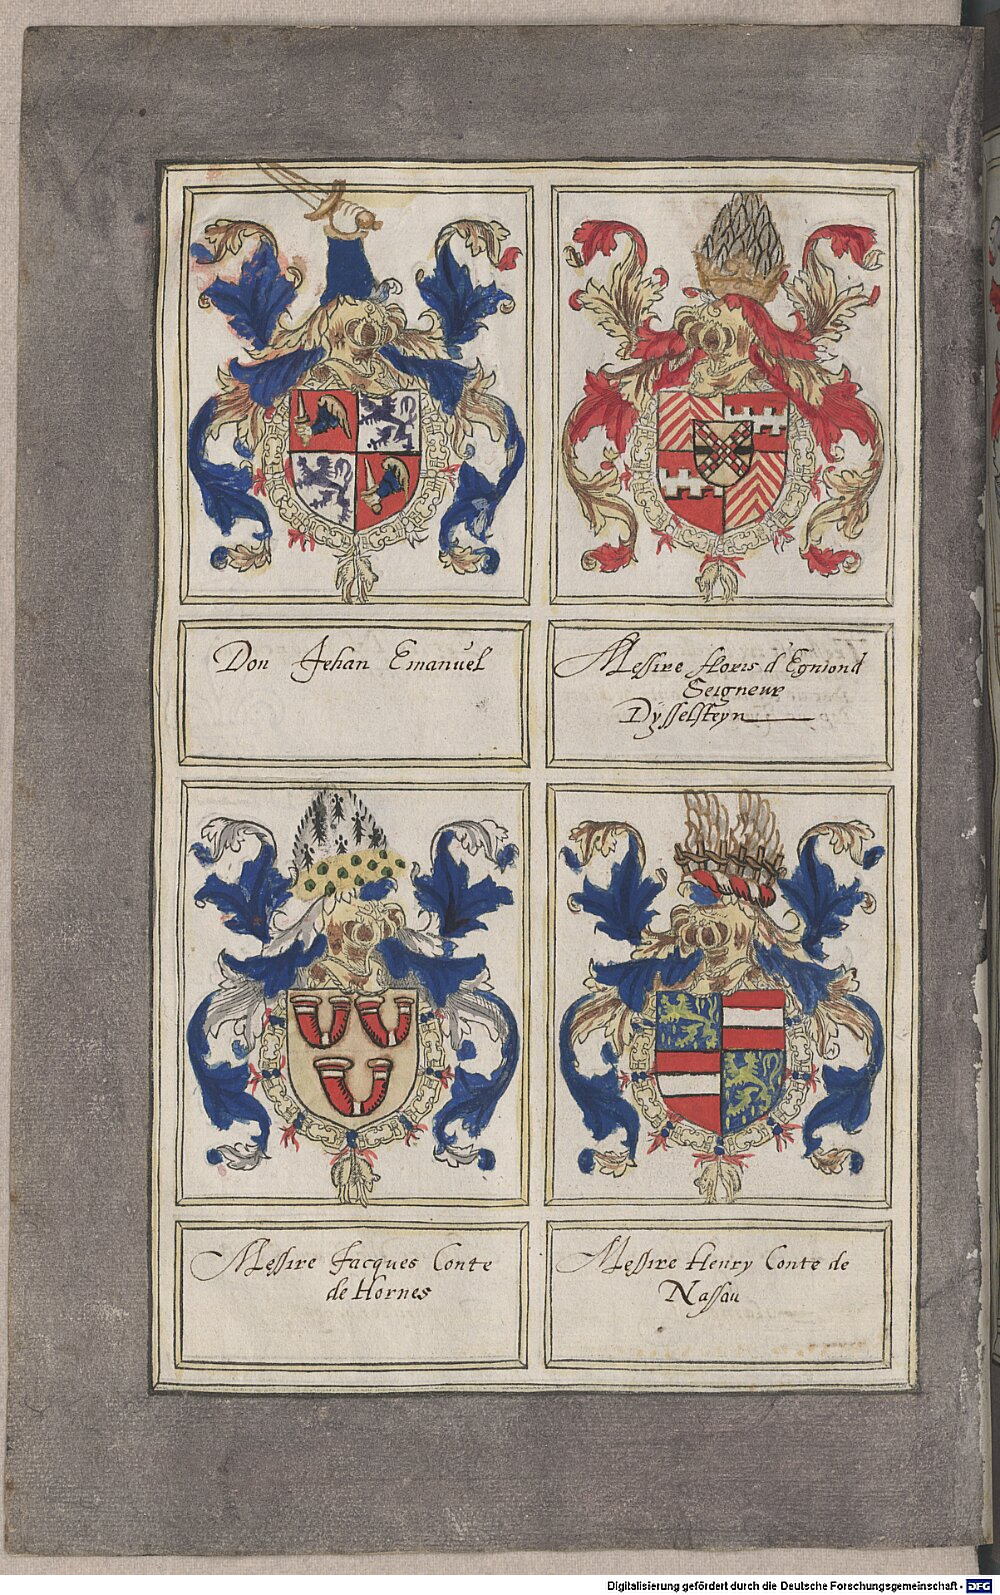 Don Jehan Emanuel
Messire floris d'Egmond
Seigneur
Dÿsselsteyn
Messire Jacques Conte
de Hornes
Messire Henry Conte de
Nassau
Digitalisierung gefördert durch die Deutsche Forschungsgemeinschaft - DFG